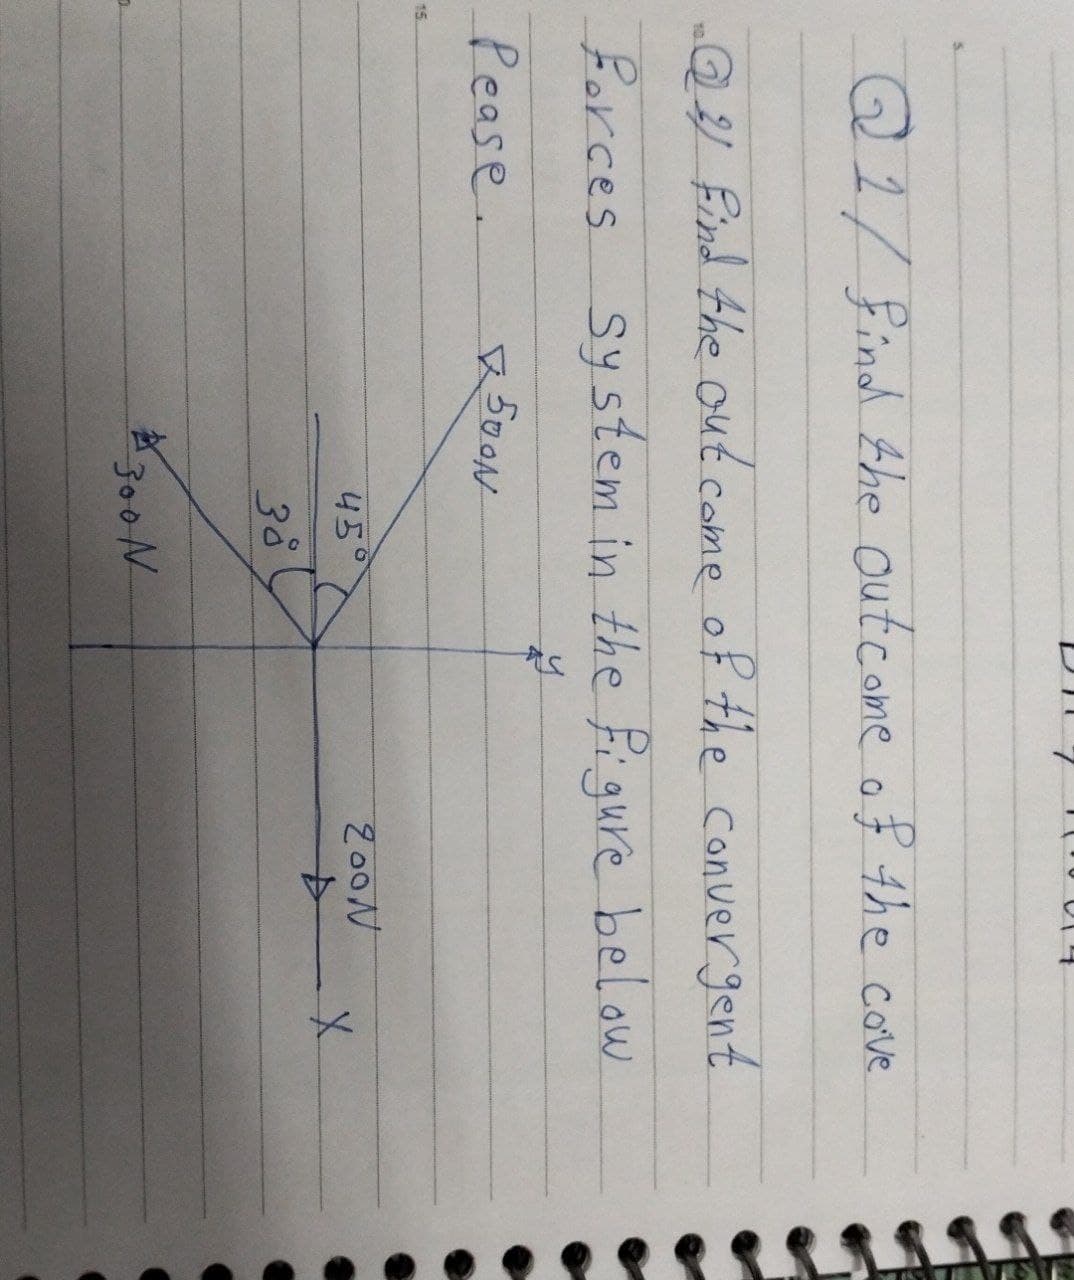 Q1/ find the outcome of the cove
Q2/ find the outcome of the convergent
forces system in the figure below
Pease.
y
500N
45°
200N
X
30°
300N
5
10
15